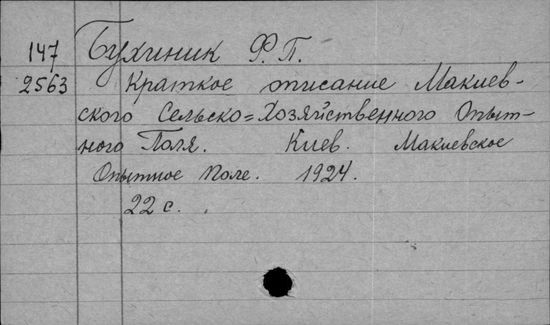 147 Бухиник Ф. П.
2563 Краткое описание Макиев-
ского Сельско=Хозяйственного Опыт-
ного Поля. Киев. Макиевское
Опытное Поле. 1924.
22 с.